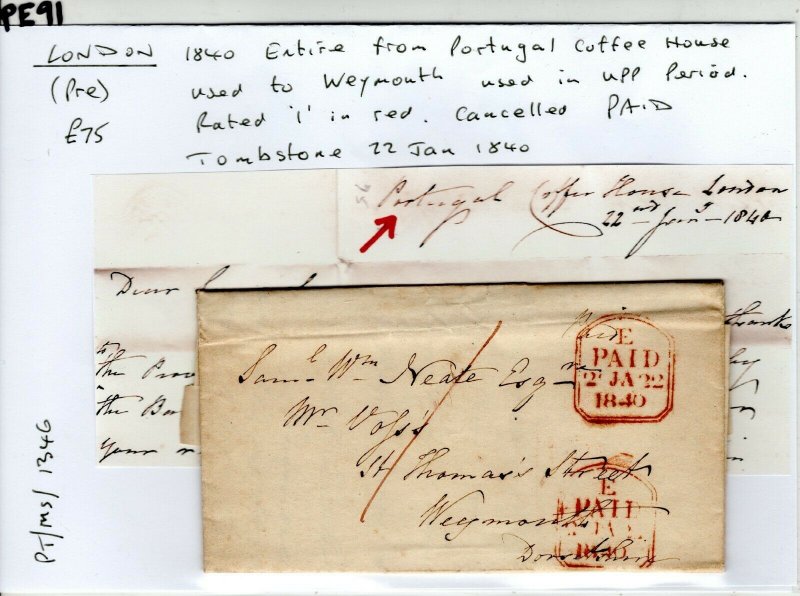 PE91
LONDON
(Pre)
£75
1840 Entire from Portugal Coffee House
used to Weymouth used in UPP Period.
Rated '1' in red. Cancelled PAID
Tombstone 22 Jan 1840
56
Portugal Coffee House London
22nd Jany 1840
Dear
thanks
the
the
by
your
in
Paid
1
Saml. Wm Neate Esqre
Mr Voss's
St Thomas's Street
Weymouth
Dorsetshire
E
PAID
2 JA 22
1840
E
PAID
JA 22
1840
PT/MS/1346